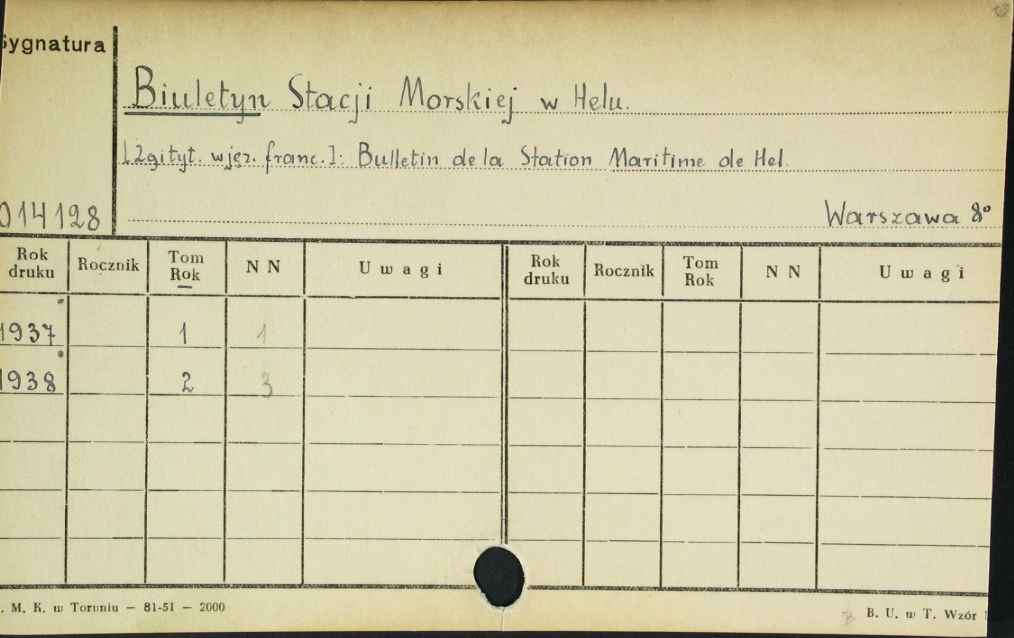 Sygnatura
Biuletyn Stacji Morskiej w Helu.
[Zgityt. w jęz. franc.]: Bulletin de la Station Maritime de Hel.
014128
Warszawa 8°
Rok druku Rocznik Tom Rok NN Uwagi Rok druku Rocznik Tom Rok NN Uwagi
1937 1 1
1938 2 3
. M. K. w Toruniu — 81-51 — 2000
B. U. w T. Wzór